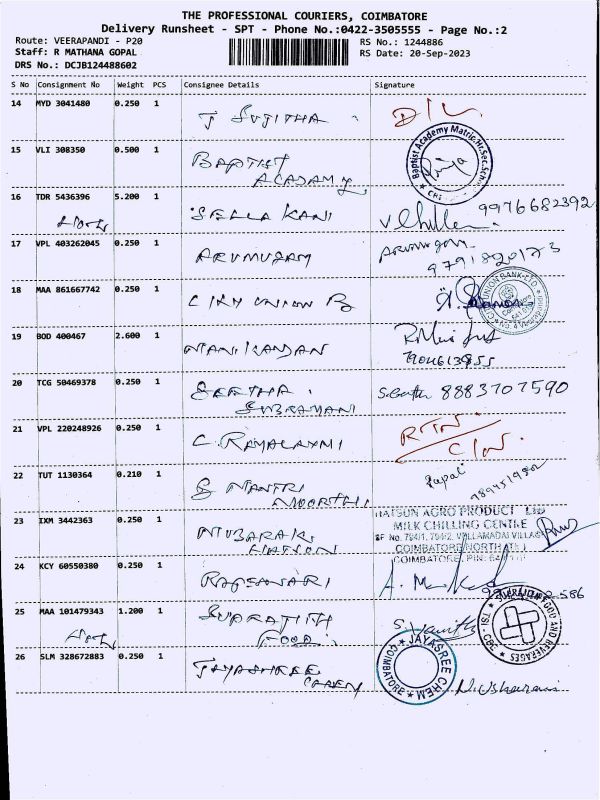 THE PROFESSIONAL COURIERS, COIMBATORE
Delivery Runsheet - SPT - Phone No.:0422-3505555 - Page No.:2
Route: VEERAPANDI - P20
RS No.: 1244886
Staff: R MATHANA GOPAL
RS Date: 20-Sep-2023
DRS No.: DCJB124488602
S No Consignment No Weight PCS Consignee Details Signature
14 MYD 3041480 0.250 1 J SUJITHA D/L
15 VLI 308350 0.500 1 BAPTIST
ACADAMY
Baptist Academy Matric.Hr.Sec.School
16 TDR 5436396 5.200 1 SELLA KANI 9976682392
17 VPL 403262045 0.250 1 ARUMUGAM
9791820173
18 MAA 861667742 0.250 1 CITY UNION B
CITY UNION BANK LTD
19 BOD 400467 2.600 1 MANIKANDAN
20 TCG 50469378 0.250 1 SEETHA 8883707590
SUBRAMANI
21 VPL 220248926 0.250 1 C. RAMALAXMI RTN
22 TUT 1130364 0.210 1 MOORTHI
23 IXM 3442363 0.250 1 MUBARAK
HATSON
HATSUN AGRO PRODUCT LTD
MILK CHILLING CENTRE
SF No. 784/1, 784/2, VELLAMADAI VILLAGE
COIMBATORE NORTH
COIMBATORE, PIN:
24 KCY 60550380 0.250 1 RAJESWARI
25 MAA 101479343 1.200 1 SUPRATITH
FOOD
FOOD AND BEVERAGES
26 SLM 328672883 0.250 1 JAYASHREE
CHEM
JAYASREE CHEM
COIMBATORE